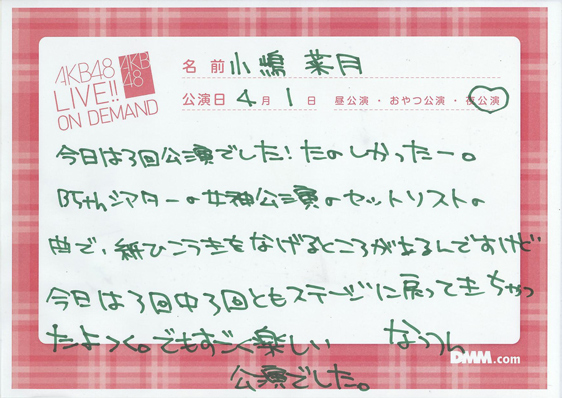 AKB48
LIVE!!
ON DEMAND
AKB
48
名前 小嶋 菜月
公演日 4月 1日 昼公演・おやつ公演・夜公演
今日は3回公演でした!たのしかったー。
B5thシアターの女神公演のセットリストの
曲で、紙ひこうきをなげるところがあるんですけど
今日は3回中3回ともステージに戻ってきちゃっ
たよっ。でもすごく楽しい
公演でした。
なっつん
DMM.com